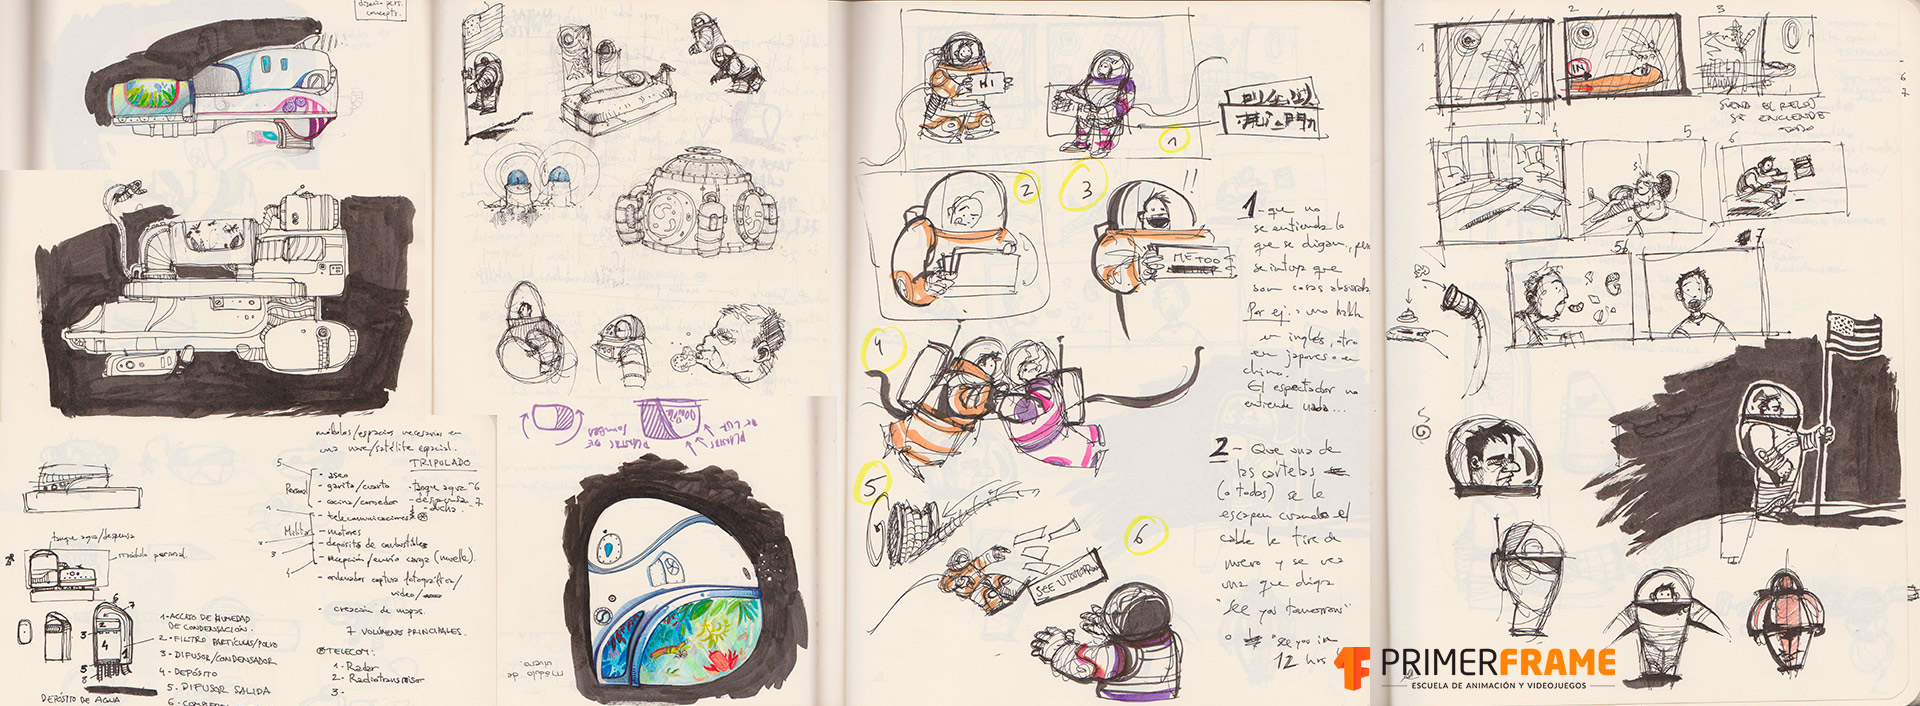 diseño pers.
concepts.
módulos/espacios necesarios en
una nave/satélite espacial.
TRIPULADO
5
Personal
- aseo
- garita/cuarto
- tanque agua - 6
- cocina/comedor
- despensa - 7
- ducha..
- telecomunicaciones
Militar
- motores
- depósito de combustible
- recepción/envío carga (muelle).
- ordenador captura fotográfica/
video/
- creación de mapas.
7 VOLÚMENES PRINCIPALES.
TELECOM:
1- Radar
2- Radiotransmisor
3-
tanque agua/despensa
módulo personal.
1- ACCESO DE HUMEDAD
DE CONDENSACIÓN.
2- FILTRO PARTÍCULAS/POLVO
3- DIFUSOR/CONDENSADOR
4- DEPÓSITO
5- DIFUSOR SALIDA
DEPÓSITO DE AGUA
módulo de
HI
1
2
3
!!
ME TOO
4
5
6
SEE U TOMORROW
1- que no
se entienda lo
que se digan, pero
se intuya que
son cosas absurdas
Por ej.: uno habla
en inglés, otro
en japones o en
chino.
El espectador no
entiende nada...
2- Que una de
las cartelas
(o todas) se le
escapen cuando el
cable le tire de
nuevo y se vea
una que diga
"see you tomorrow"
o "see you in
12 hrs"
1
2
3
IN
SUENA EL RELOJ
SE ENCIENDE
TODO
4
5
6
5b
7
PRIMERFRAME
ESCUELA DE ANIMACIÓN Y VIDEOJUEGOS